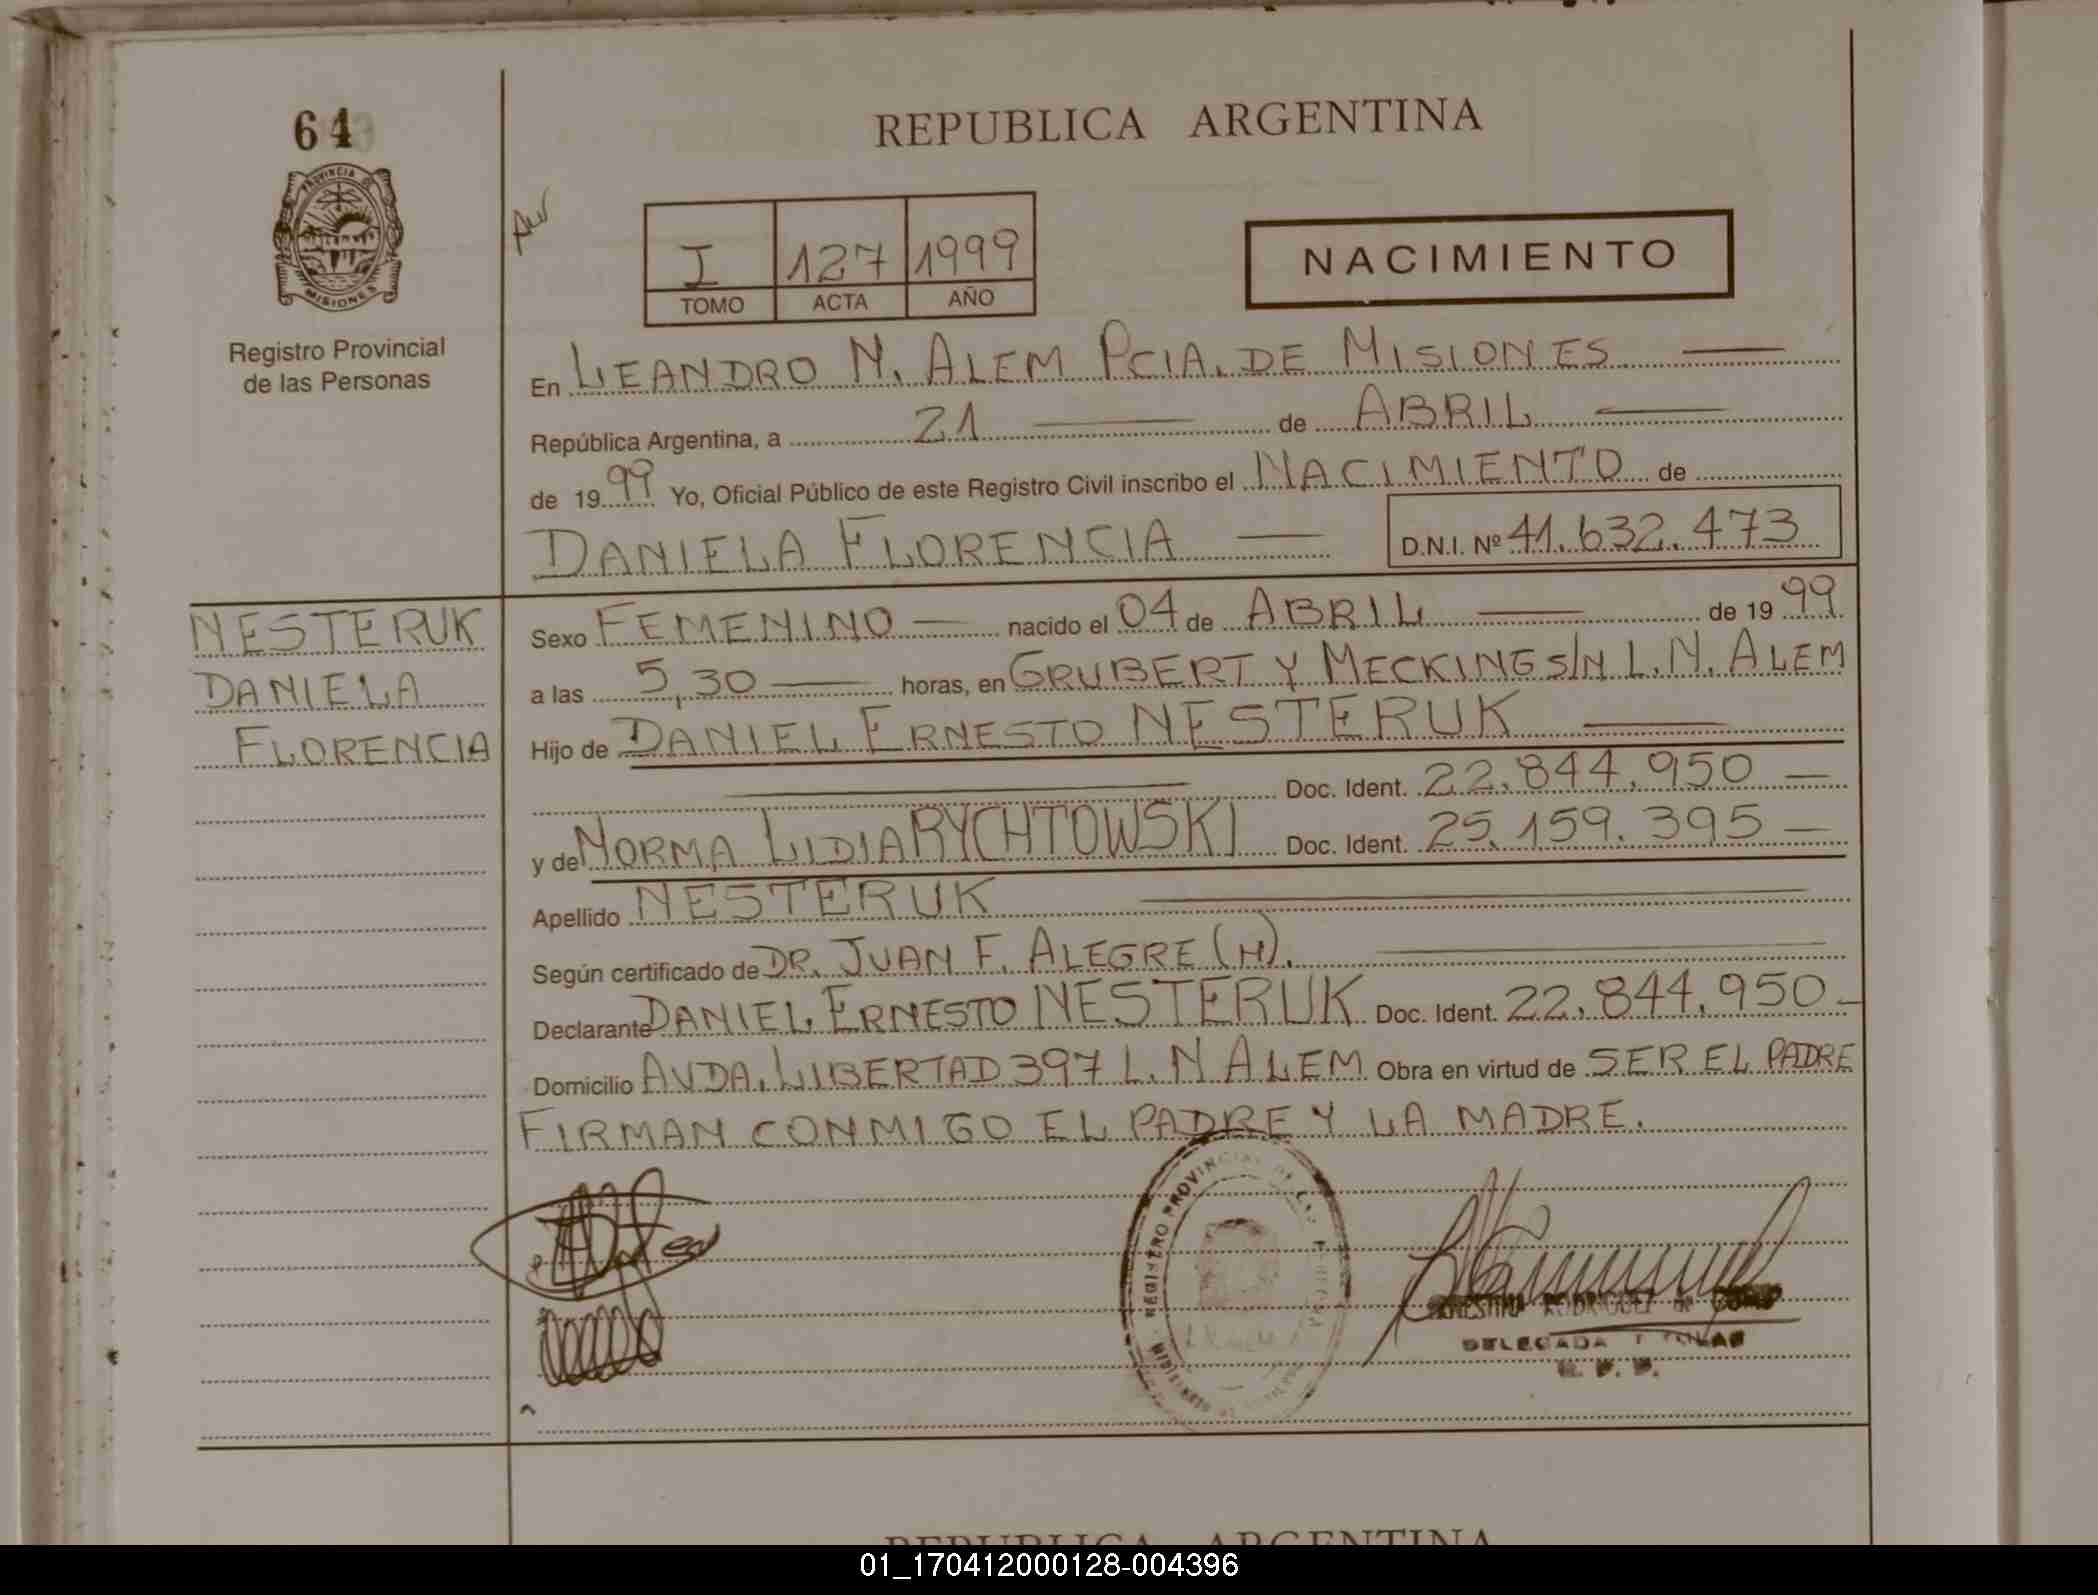 64
PROVINCIA DE
MISIONES
Registro Provincial
de las Personas
REPUBLICA ARGENTINA
I 127 1999
TOMO ACTA AÑO
NACIMIENTO
En LEANDRO N. ALEM PCIA. DE MISIONES
República Argentina, a 21 de ABRIL
de 1999 Yo, Oficial Público de este Registro Civil inscribo el NACIMIENTO de
DANIELA FLORENCIA D.N.I. Nº 41.632.473
NESTERUK
DANIELA
FLORENCIA
Sexo FEMENINO nacido el 04 de ABRIL de 1999
a las 5,30 horas, en GRUBERT Y MECKING S/N L.N. ALEM
Hijo de DANIEL ERNESTO NESTERUK
Doc. Ident. 22.844.950
y de NORMA LIDIA RYCHTOWSKI Doc. Ident. 25.159.395
Apellido NESTERUK
Según certificado de DR. JUAN F. ALEGRE (H).
Declarante DANIEL ERNESTO NESTERUK Doc. Ident. 22.844.950
Domicilio AVDA. LIBERTAD 397 L. N ALEM Obra en virtud de SER EL PADRE
FIRMAN CONMIGO EL PADRE Y LA MADRE.
REGISTRO PROVINCIAL DE LAS
RODRIGUEZ
DELEGADA TITULAR
REPUBLICA ARGENTINA
01_170412000128-004396